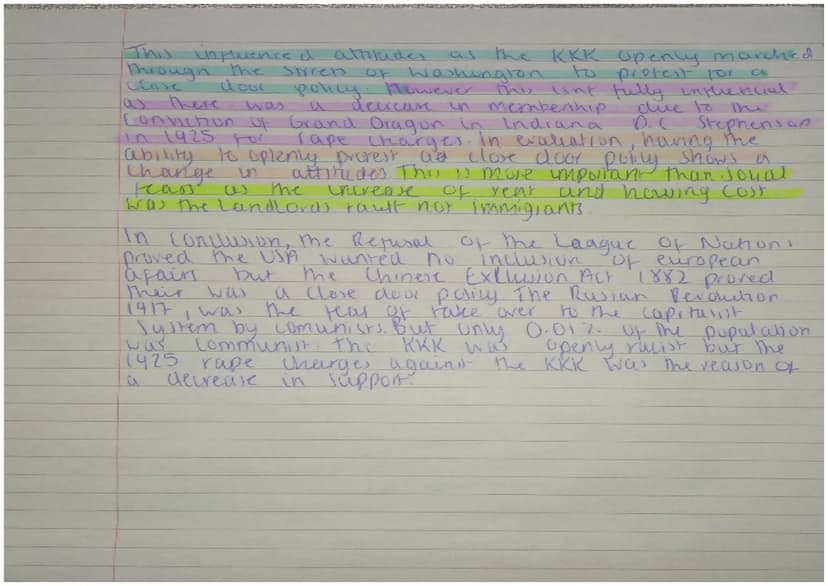 This influenced attitudes as the KKK openly marched
through the streets of Washington to protest for a
close door policy. However this isnt fully influencial
as there was a decrease in membership due to the
conviction of Grand Dragon in Indiana D.C Stephenson
in 1925 for rape charges. In evaluation, having the
ability to oplenly protest ad close door policy shows a
change in attitudes. This is more important than soual
fears as the increase of rent and housing cost
was the Landlords fault not immigrants.
In conclusion, the Refusal of the League of Nations
proved the USA wanted no inclusion of european
afairs but the Chinese Exclusion Act 1882 proved
their was a close door policy The Rusian Revolution
1917, was the fear of take over to the capitalist
system by comunists. But only 0.01% of the population
was communist. The KKK was openly racist but the
1925 rape charges against the KKK was the reason of
a decrease in support.